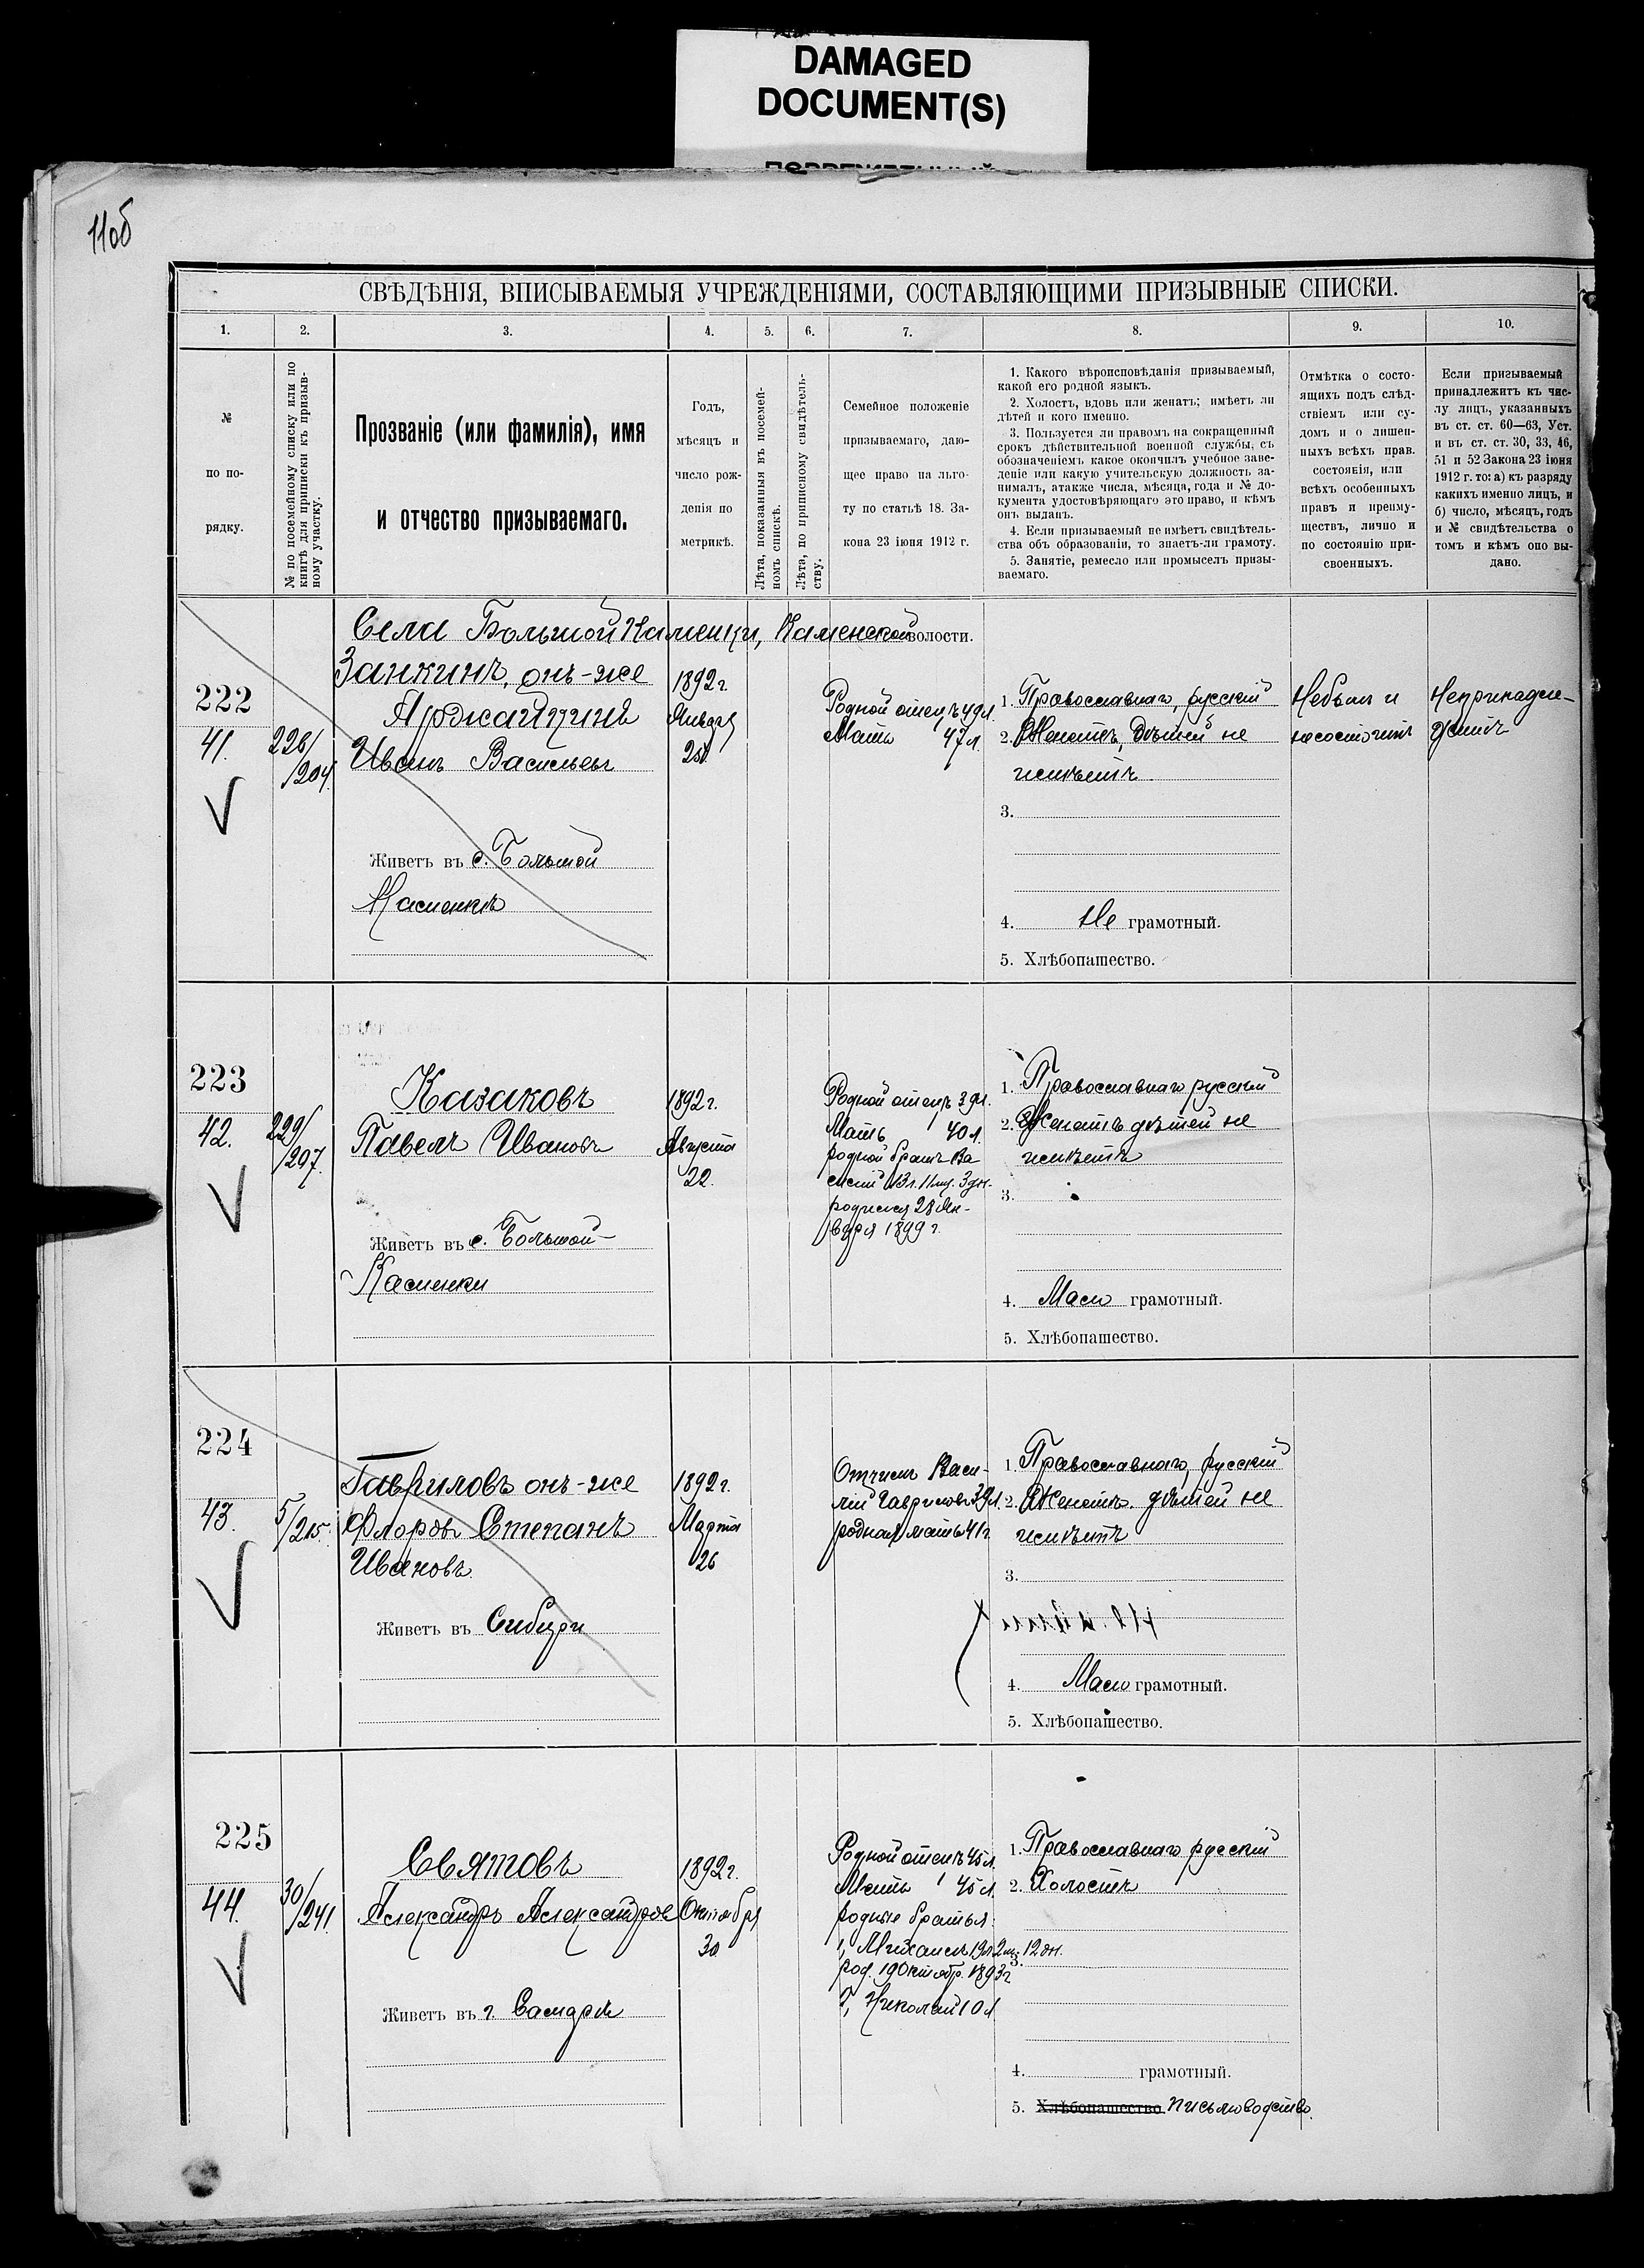 DAMAGED
DOCUMENT(S)
11об
СВѢДѢНІЯ, ВПИСЫВАЕМЫЯ УЧРЕЖДЕНІЯМИ, СОСТАВЛЯЮЩИМИ ПРИЗЫВНЫЕ СПИСКИ.
1. 2. 3. 4. 5. 6. 7. 8. 9. 10.
№
по по-
рядку.
№ по посемейному списку или по
книгѣ для приписки къ призыв-
ному участку.
Прозваніе (или фамилія), имя
и отчество призываемаго.
Годъ,
мѣсяцъ и
число рож-
денія по
метрикѣ.
Лѣта, показанныя въ посемей-
номъ спискѣ.
Лѣта, по приписному свидѣтель-
ству.
Семейное положеніе
призываемаго, даю-
щее право на льго-
ту по статьѣ 18. За-
кона 23 іюня 1912 г.
1. Какого вѣроисповѣданія призываемый,
какой его родной языкъ.
2. Холостъ, вдовъ или женатъ; имѣетъ ли
дѣтей и кого именно.
3. Пользуется ли правомъ на сокращенный
срокъ дѣйствительной военной службы, съ
обозначеніемъ какое окончилъ учебное заве-
деніе или какую учительскую должность за-
нималъ, атакже числа, мѣсяца, года и № до-
кумента удостовѣряющаго это право, и кѣмъ
онъ выданъ.
4. Если призываемый не имѣетъ свидѣтель-
ства объ образованіи, то знаетъ-ли грамоту.
5. Занятіе, ремесло или промыселъ призы-
ваемаго.
Отмѣтка о состо-
ящихъ подъ слѣд-
ствіемъ или су-
домъ и о лишен-
ныхъ всѣхъ прав.
состоянія, или
всѣхъ особенныхъ
правъ и преиму-
ществъ, лично и
по состоянію при-
своенныхъ.
Если призываемый
принадлежитъ къ чис-
лу лицъ, указанныхъ
въ ст. ст. 60—63, Уст.
и въ ст. ст. 30, 33, 46,
51 и 52 Закона 23 іюня
1912 г. то: а) къ разряду
какихъ именно лицъ, и
б) число, мѣсяцъ, годъ
и № свидѣтельства о
томъ и кѣмъ оно вы-
дано.
Села Большой Каменки, Каменской волости.
222
41.
226/
/204.
Занкинъ, онъ-же
Иванъ Васильевъ
Живетъ въ с. Большой
Каменкѣ
1892 г.
Января
Родной отецъ 49 л.
Мать 47 л.
1. Православнаго, русскій
2. Женатъ, дѣтей не
имѣетъ
3.
4. Не грамотный.
5. Хлѣбопашество.
Небылъ и
несостоитъ
Непринадле-
житъ
223
42.
229/
/207.
Казаковъ
Павелъ Ивановъ
Живетъ въ с. Большой-
Каменки
1892 г.
Августа
22.
Родной отецъ 39 л.
Мать 40 л.
родной братъ Ва
силій 13 л. 11 мц. 3 дн.
родился 28 Ян-
варя 1899 г.
1. Православнаго русскій
2. Женатъ дѣтей не
имѣетъ
3.
4. Мало грамотный.
5. Хлѣбопашество.
224
43.
5/
/215.
Гавриловъ онъ-же
Флоровъ Степанъ
Ивановъ.
Живетъ въ Сибири
1892 г.
Марта
26
Отчимъ Васи-
лій Гавриловъ 39 л.
родная мать 41 г
1. Православнаго, русскій
2. Женатъ. дѣтей не
имѣетъ
3.
4. Мало грамотный.
5. Хлѣбопашество.
225
44.
30/
/241.
Святовъ
Александръ Александровъ
Живетъ въ г. Самарѣ
1892 г.
Октября
30
Родной отецъ 45 л.
Мать 45 л.
родные братья:
1, Михаилъ 19 л 2 мц. 12 дн.
род. 19 Октябр. 1893 г
2, Николай 10 л
1. Православнаго русскій
2. Холостъ
3.
4. грамотный.
5. Хлѣбопашество Письмоводство.